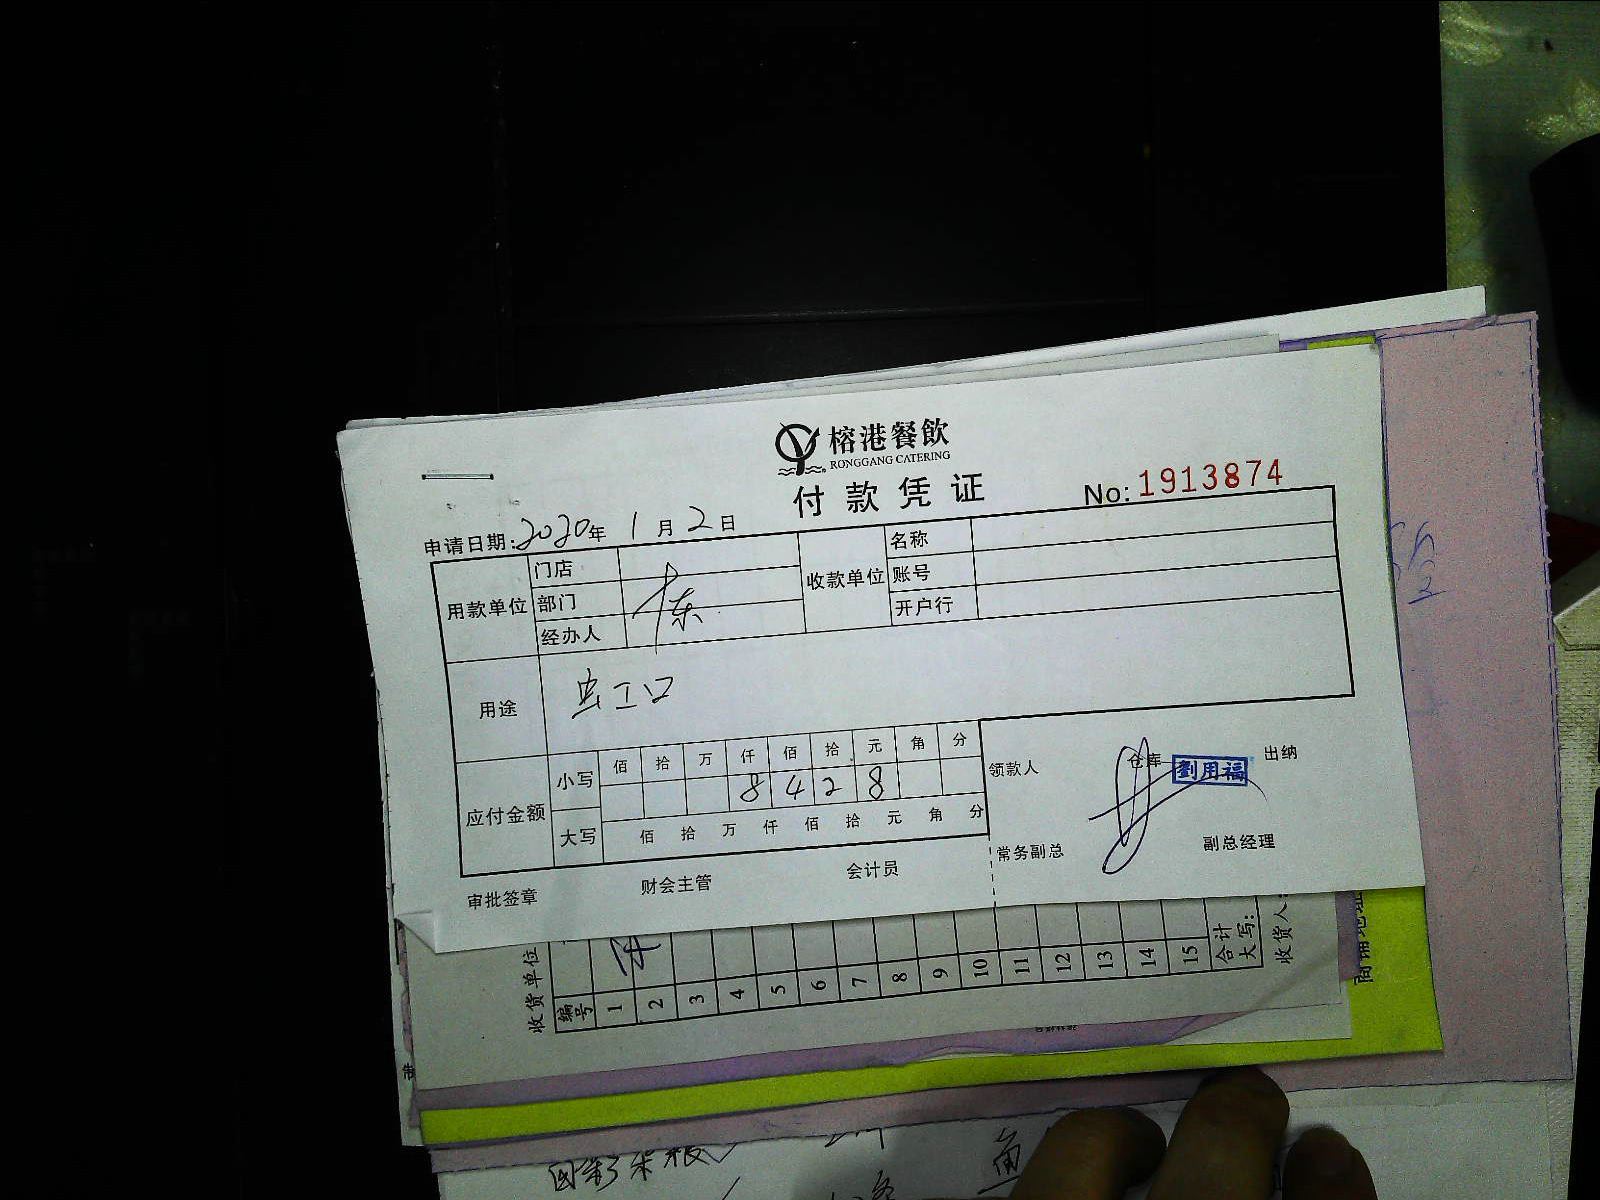 榕港餐飲
RONGGANG CATERING
付款凭证
No: 1913874
申请日期: 2020年 1月 2日
用款单位 门店 收款单位 名称
部门 账号
经办人 开户行
用途
应付金额 小写 佰 拾 万 仟 佰 拾 元 角 分
8 4 2 8
大写 佰 拾 万 仟 佰 拾 元 角 分
领款人 仓库 劉用福 出纳
常务副总 副总经理
审批签章 财会主管 会计员
收货单位
编号 1 2 3 4 5 6 7 8 9 10 11 12 13 14 15 合计
大写:
收货人